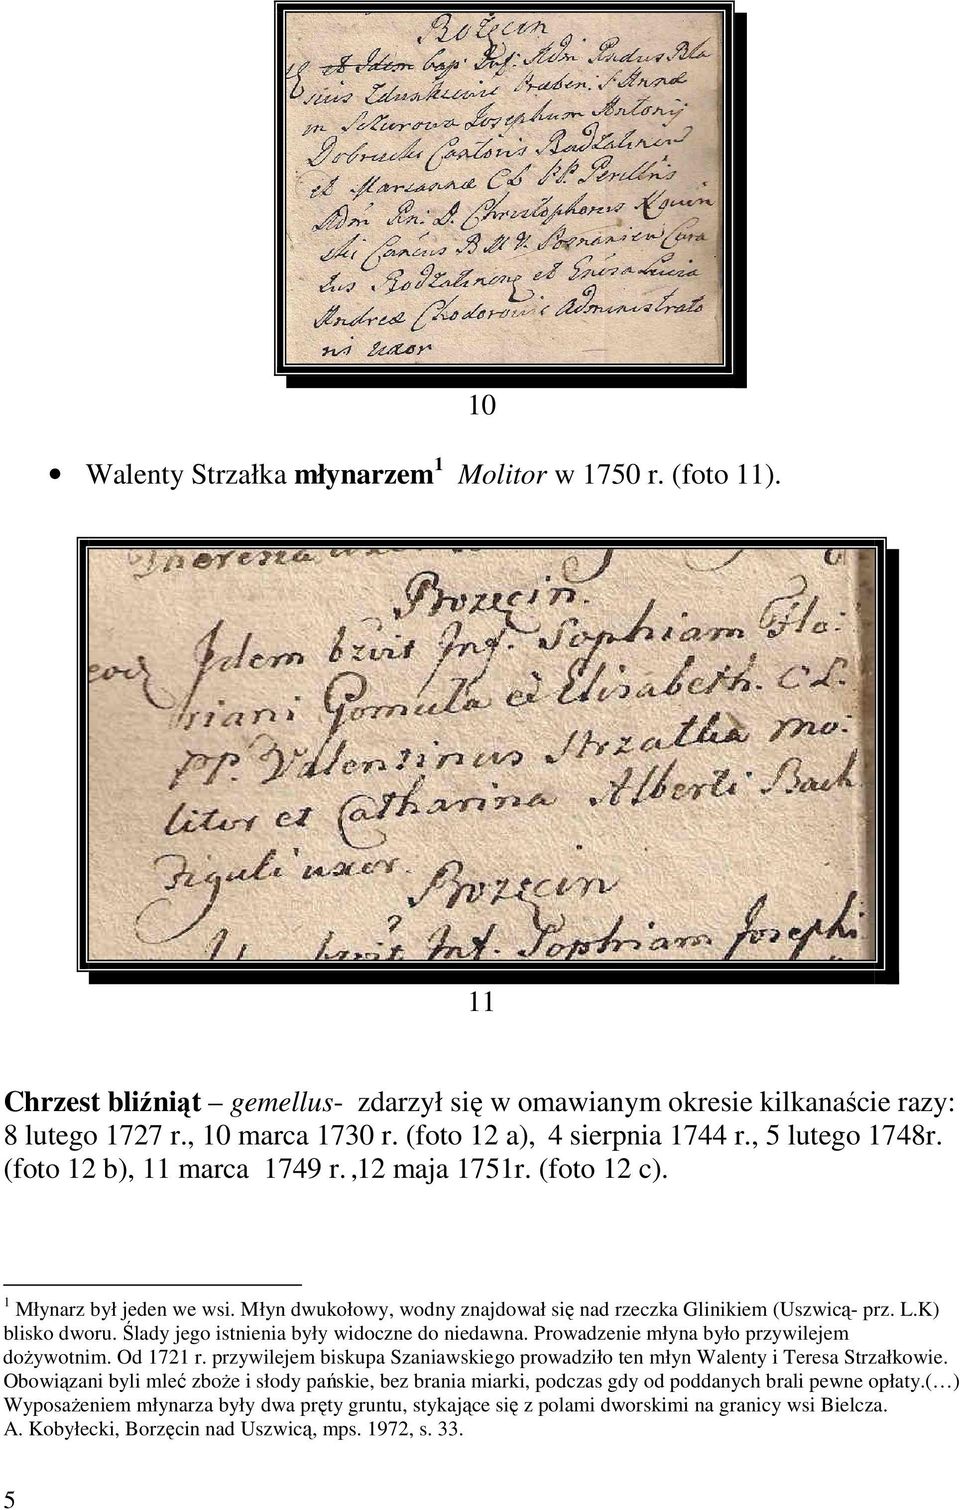 Bożęcin
et Idem bap: Inf: Adm Rndus Bla
sius Zdunkewic Præben: S Annæ
in Szczurowa Josephum Antonij
Dobrucki Cantoris Radzalinen
et Mariannæ CL PP. Perillris
Adm Rn: D. Christophorus
ski Cancus B M V. Posnanien Cura
tus Rodzalinen et Gnesa Lucia
Andreæ Chodorowic Administrato
ris uxor
10
• Walenty Strzałka młynarzem1 Molitor w 1750 r. (foto 11).
Theresia
Brozęcin.
Eod Idem bzvit Inf. Sophiam Flo:
riani Gomuła et Elisabeth. C L.
PP. Valentinus Strzatka mo:
litor et Catharina Alberti Bach
Figuli uxor.
Brozęcin
bzvit Inf. Sophiam Josephi
11
Chrzest bliźniąt – gemellus- zdarzył się w omawianym okresie kilkanaście razy:
8 lutego 1727 r., 10 marca 1730 r. (foto 12 a), 4 sierpnia 1744 r., 5 lutego 1748r.
(foto 12 b), 11 marca 1749 r. ,12 maja 1751r. (foto 12 c).
1 Młynarz był jeden we wsi. Młyn dwukołowy, wodny znajdował się nad rzeczka Glinikiem (Uszwicą- prz. L.K)
blisko dworu. Ślady jego istnienia były widoczne do niedawna. Prowadzenie młyna było przywilejem
dożywotnim. Od 1721 r. przywilejem biskupa Szaniawskiego prowadziło ten młyn Walenty i Teresa Strzałkowie.
Obowiązani byli mleć zboże i słody pańskie, bez brania miarki, podczas gdy od poddanych brali pewne opłaty.(…)
Wyposażeniem młynarza były dwa pręty gruntu, stykające się z polami dworskimi na granicy wsi Bielcza.
A. Kobyłecki, Borzęcin nad Uszwicą, mps. 1972, s. 33.
5